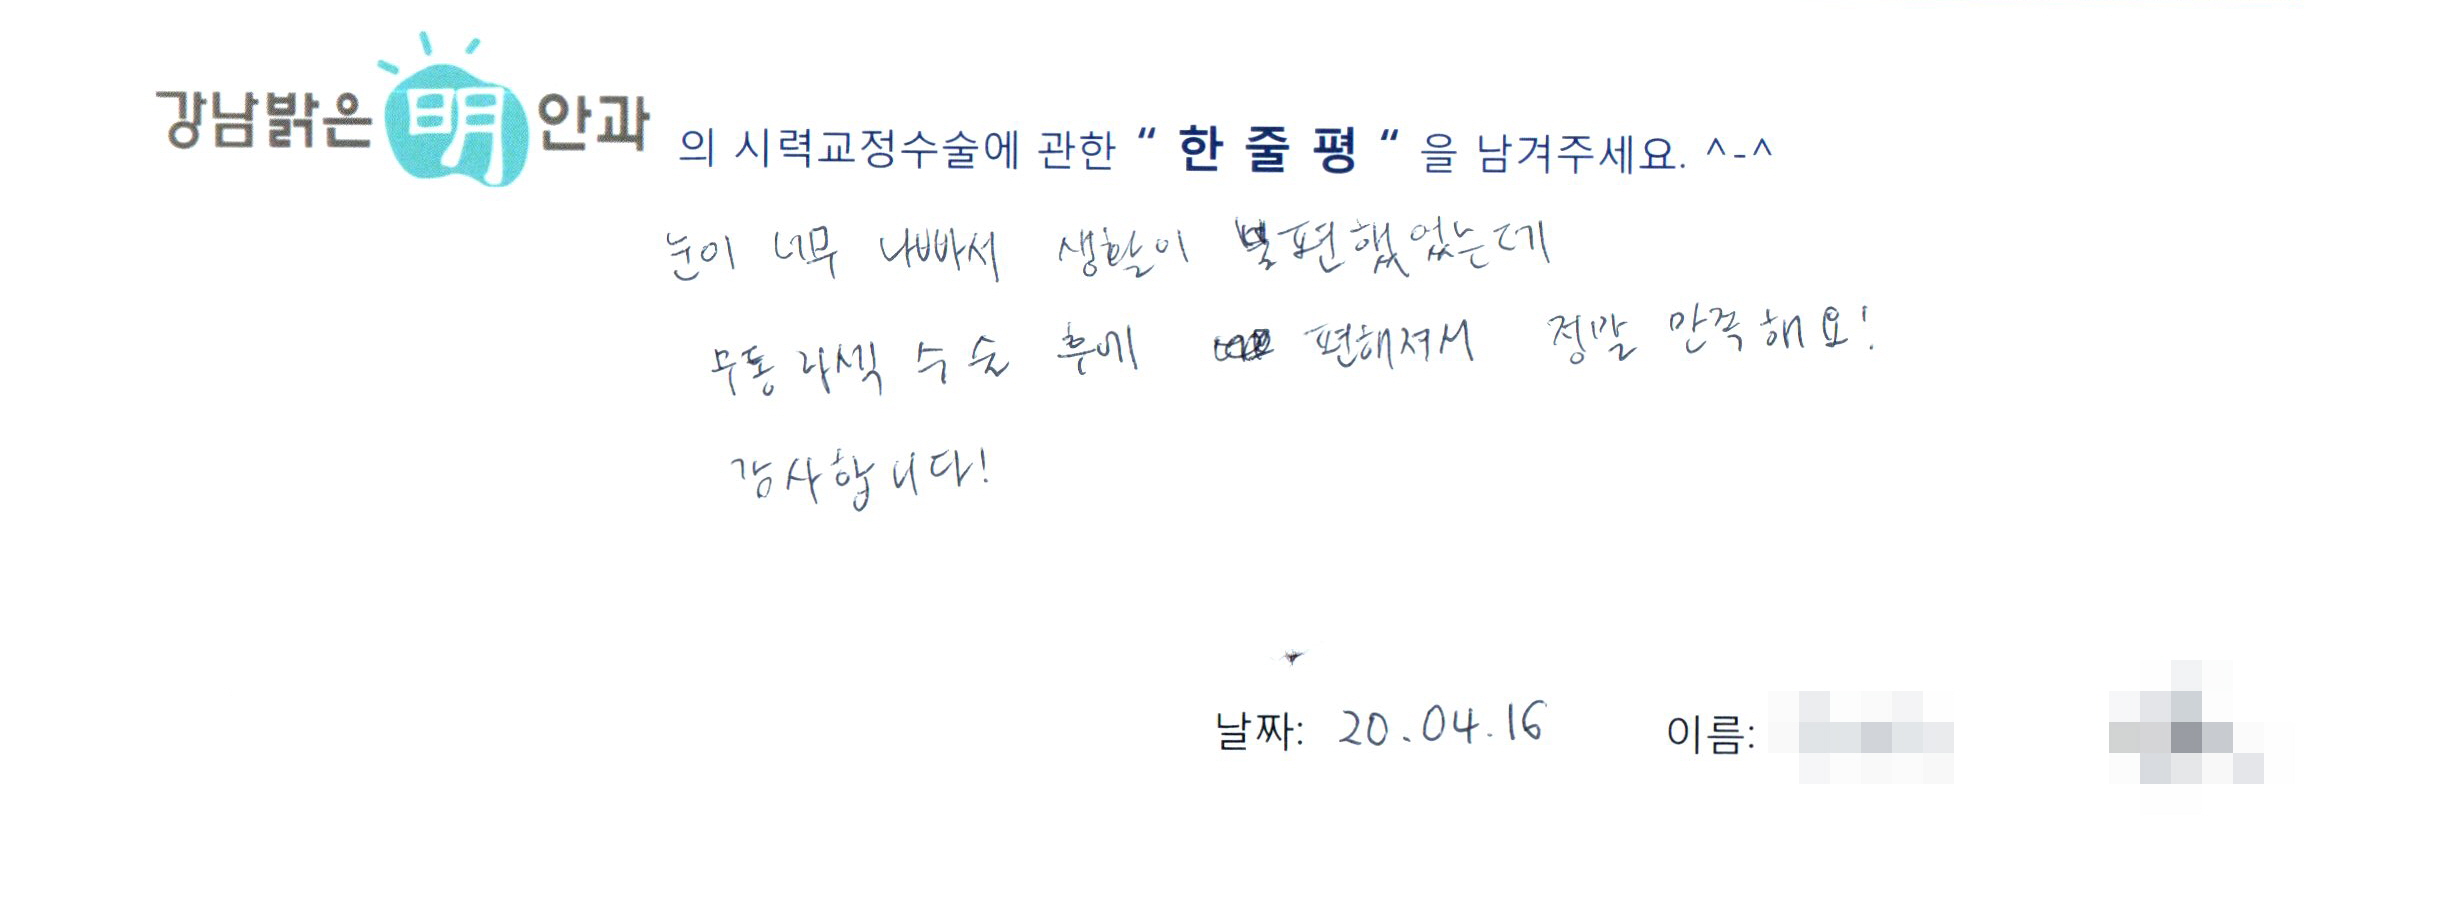 강남밝은 明 안과 의 시력교정수술에 관한 “ 한 줄 평 “ 을 남겨주세요. ^-^
눈이 너무 나빠서 생활이 불편했었는데
무통라섹 수술 후에 편해져서 정말 만족해요!
감사합니다!
날짜: 20.04.16 이름: